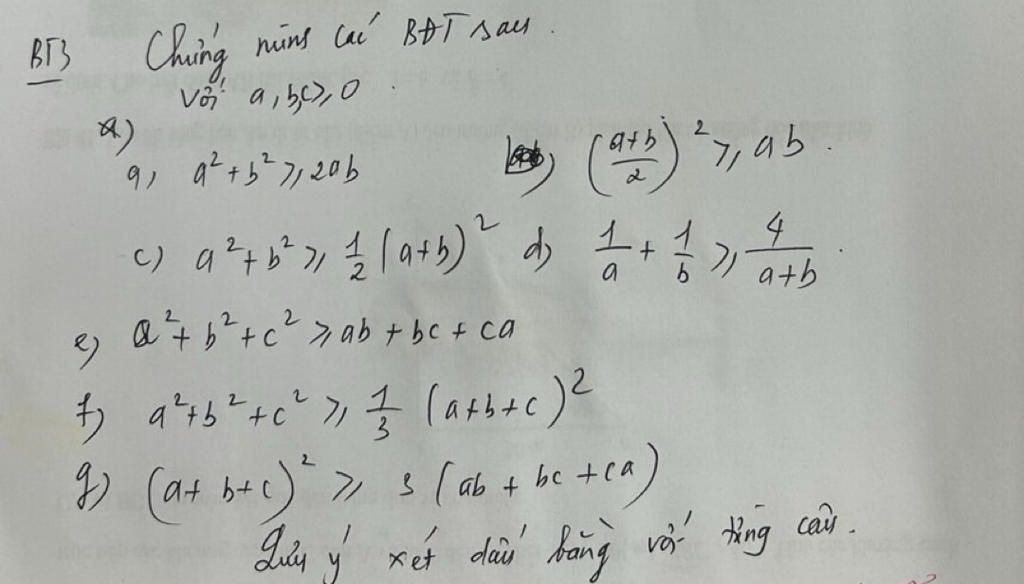 BT3 Chứng mins các BĐT sau.
với a, b,c ⩾ 0.
a)
a, a² + b² ⩾ 2ab b) (a+b/2)² ⩾ ab.
c) a² + b² ⩾ 1/2 (a+b)² d) 1/a + 1/b ⩾ 4/a+b.
e) a² + b² + c² ⩾ ab + bc + ca
f) a² + b² + c² ⩾ 1/3 (a+b+c)²
g) (a+b+c)² ⩾ 3 (ab + bc + ca)
Lưu ý xét dấu bằng với từng câu.